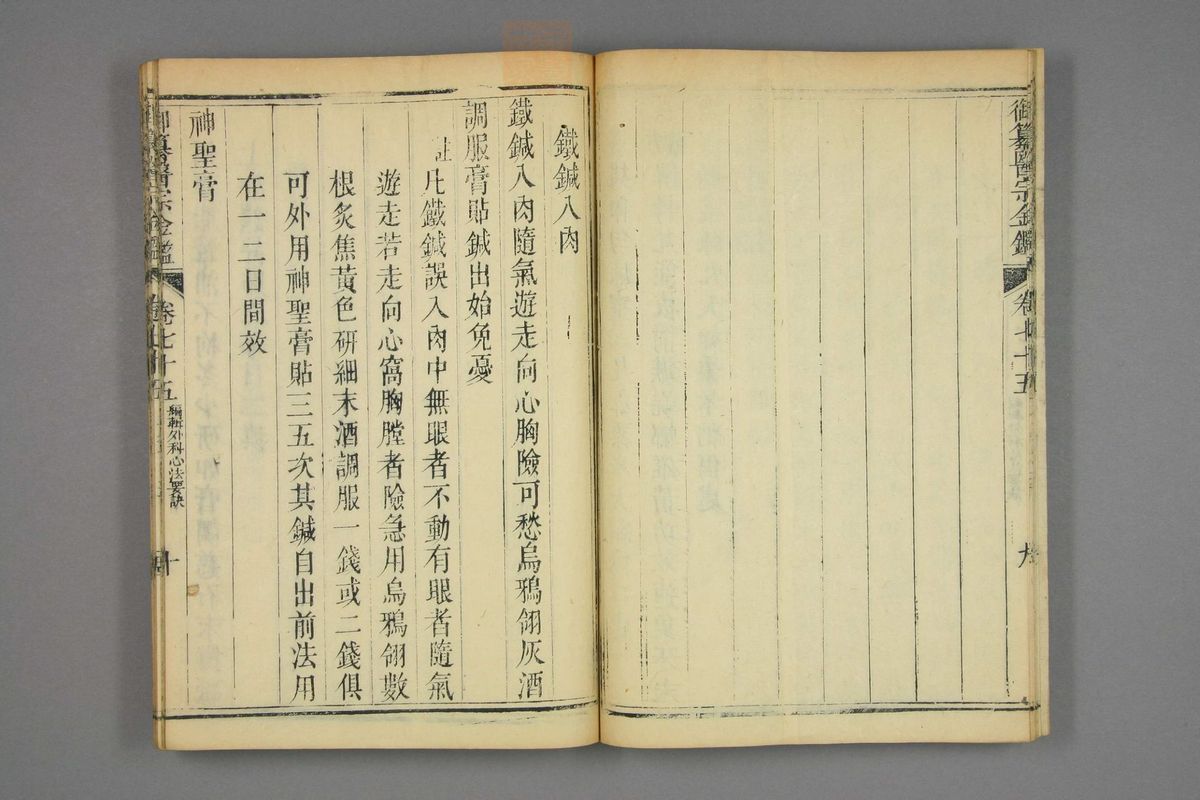 御纂醫宗金鑑
卷七十五
九
鐵鍼入肉
鐵鍼入肉隨氣遊走向心胸險可愁烏鴉翎灰酒
調服膏貼鍼出始免憂
註
凡鐵鍼誤入肉中無眼者不動有眼者隨氣
遊走若走向心窩胸膛者險急用烏鴉翎數
根炙焦黃色研細末酒調服一錢或二錢俱
可外用神聖膏貼三五次其鍼自出前法用
在一二日間效
神聖膏
御纂醫宗金鑑
卷七十五
編輯外科心法要訣
十